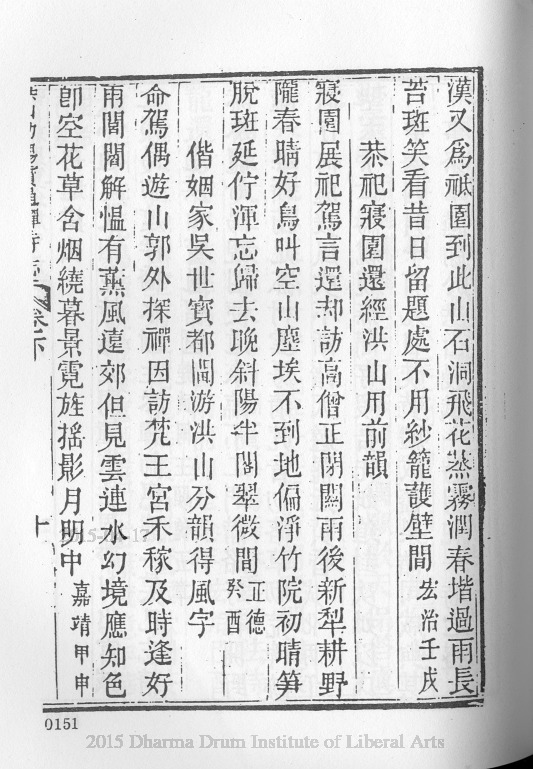 漢又爲祗園到此山石洞飛花蒸霧潤春堦過雨長
苔斑笑看昔日留題處不用紗籠護壁間宏治壬戌
恭祀寢園還經洪山用前韻
寢園展祀駕言還却訪高僧正閉關雨後新犁耕野
隴春晴好鳥叫空山塵埃不到地偏淨竹院初晴筍
脫斑延佇渾忘歸去晚斜陽半閣翠微間正德癸酉
偕姻家吳世寶都閫游洪山分韻得風字
命駕偶遊山郭外探禪因訪梵王宮禾稼及時逢好
雨閭閻解慍有薰風遠郊但見雲連水幻境應知色
卽空花草含烟繞暮景霓旌揺影月明中嘉靖甲申
卷下
十
0151
2015 Dharma Drum Institute of Liberal Arts